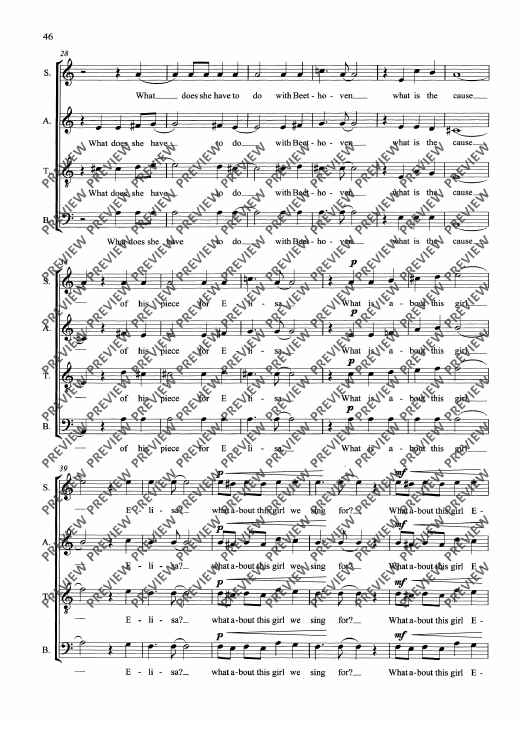 46
28
S.
What___ does she have to do with Beet - ho - ven___ what is the cause___
A.
What does she have___ to do___ with Beet - ho - ven___ what is the cause___
T.
What does she have___ to do___ with Beet - ho - ven___ what is the cause___
B.
What does she have to do___ with Beet - ho - ven___ what is the cause___
S.
p
___ of his piece for E - li - sa. What is a - bout this girl___
A.
p
___ of his piece for E - li - sa. What is a - bout this girl___
T.
p
___ of his piece for E - li - sa. What is a - bout this girl___
B.
p
___ of his piece for E - li - sa. What is a - bout this girl___
39
S.
p mf
___ E - li - sa?___ what a-bout this girl we sing for?___ What a-bout this girl E -
A.
p mf
___ E - li - sa?___ what a-bout this girl we sing for?___ What a-bout this girl E -
T.
p mf
___ E - li - sa?___ what a-bout this girl we sing for?___ What a-bout this girl E -
B.
p mf
___ E - li - sa?___ what a-bout this girl we sing for?___ What a-bout this girl E -
PREVIEW PREVIEW PREVIEW PREVIEW PREVIEW PREVIEW